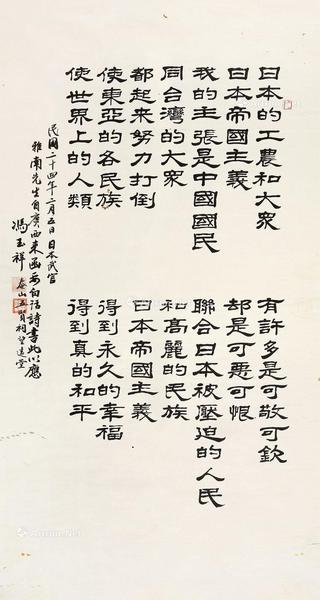 日本的工農和大衆
有許多是可敬可欽
日本帝國主義
却是可惡可恨
我的主張是中國國民
聯合日本被壓迫的人民
同台灣的大衆
和高麗的民族
都起來努力打倒
日本帝國主義
使東亞的各民族
得到永久的幸福
使世界上的人類
得到真的和平
民國二十四年二月五日日本武官
雅南先生自廣西來函要白話詩書此以應
馮玉祥 泰山五賢祠